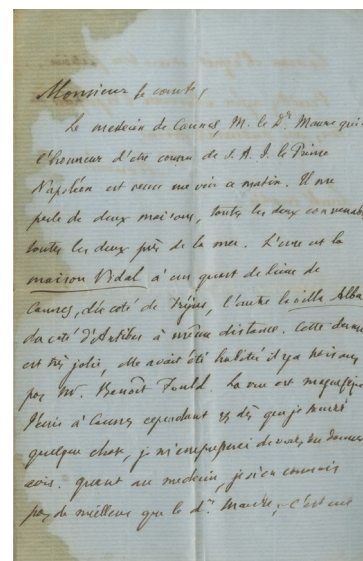 Monsieur le comte,
Le medecin de Cannes, M. le Dr. Maure qui a
l'honneur d'etre connu de S. A. I. le Prince
Napoléon est venu me voir ce matin. Il me
parle de deux maisons, toutes les deux convenables
toutes les deux près de la mer. L'une est la
maison Vidal à un quart de lieue de
Cannes, du coté de Fréjus, l'autre la villa Alba
du coté d'Antibes à même distance. Cette derniere
est très jolie, elle avait été habitée il y a trois ans
par Mr. Benoît Fould. La vue est magnifique
J'ecris à Cannes cependant et dès que je saurai
quelque chose, je m'empresserai de vous en donner
avis. quant au medecin, je n'en connais
pas de meilleur que le dr. Maure, c'est une